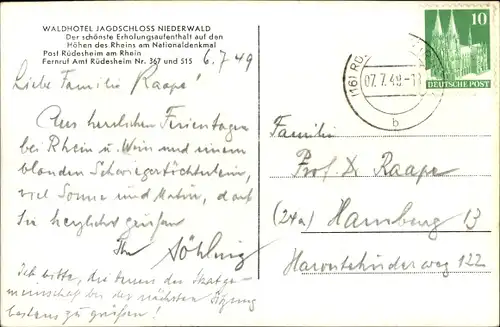 WALDHOTEL JAGDSCHLOSS NIEDERWALD
Der schönste Erholungsaufenthalt auf den
Höhen des Rheins am Nationaldenkmal
Post Rüdesheim am Rhein
Fernruf Amt Rüdesheim Nr. 367 und 515
6.7.49
Liebe Familie Raape!
Aus herrlichen Ferientagen
bei Rhein u. Wein und einem
blonden Schwiegertöchterlein,
viel Sonne und Natur, darf
Sie herzlichst grüßen
Ihr Söhling
Ich bitte, die treuen der Skatge-
meinschaft bei der nächsten Sitzung
bestens zu grüßen!
10
DEUTSCHE POST
(16) RÜ
07.7.49
b
Familie
Prof. D Raape
(24a) Hamburg 13
Harvestehuder weg 122